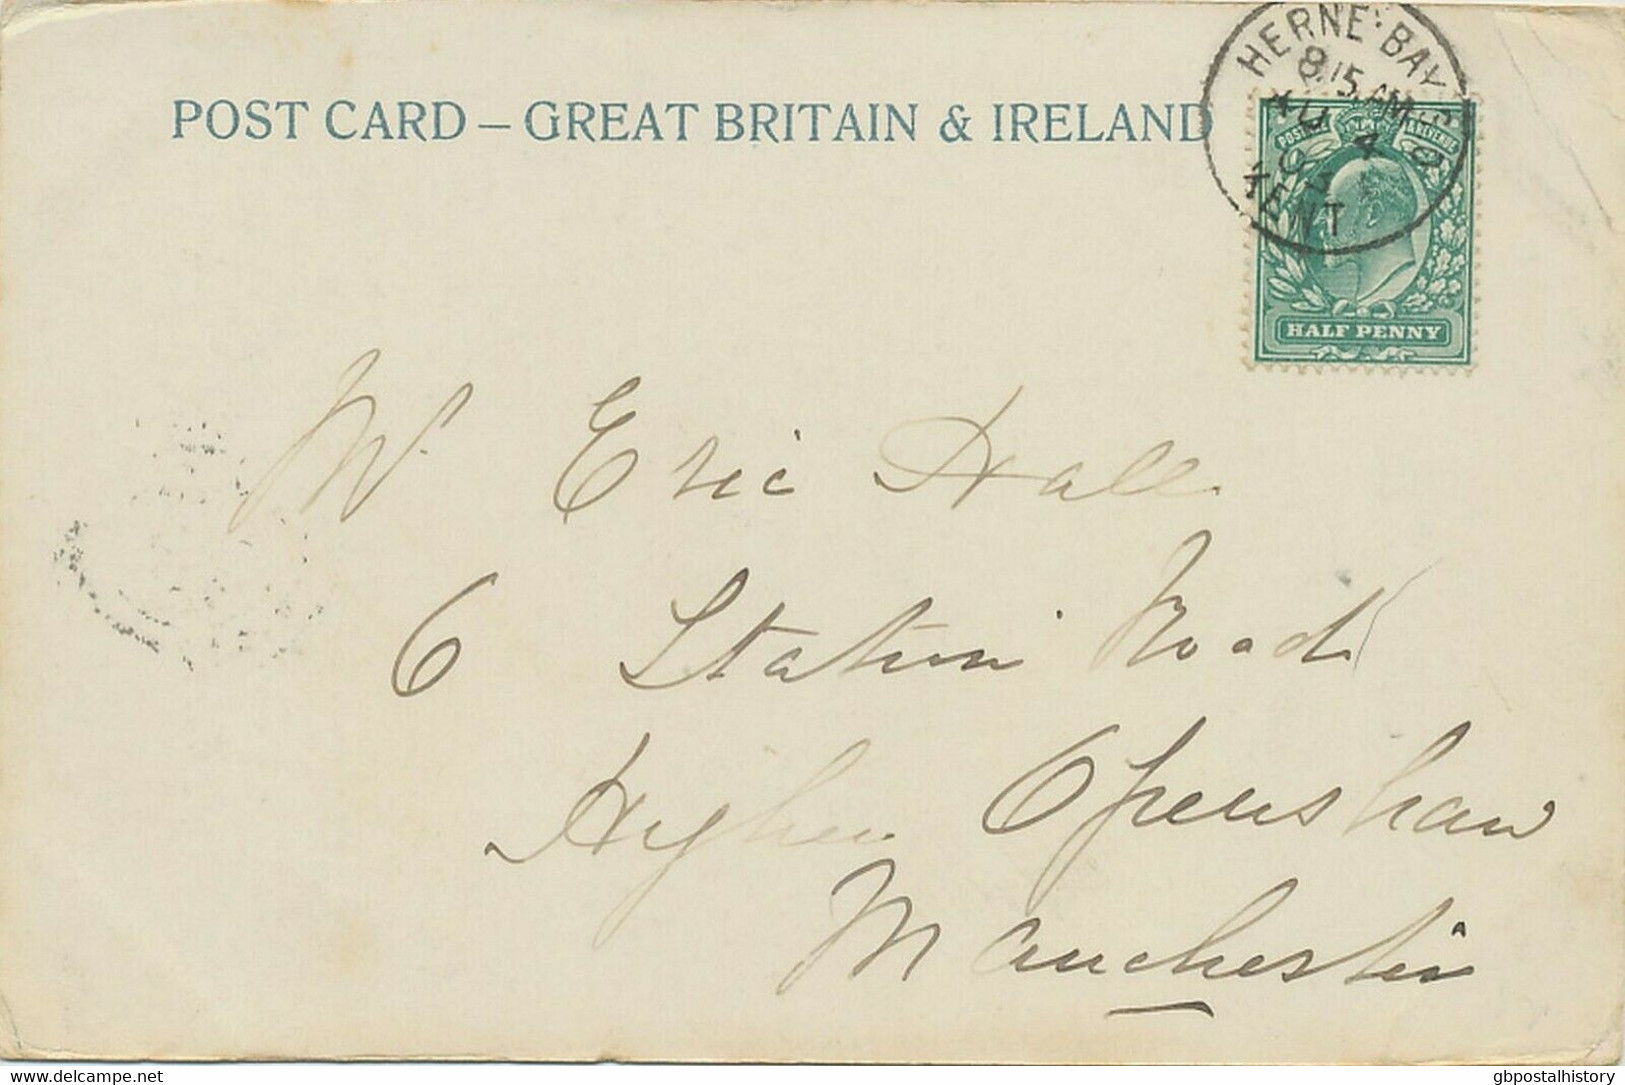 POST CARD – GREAT BRITAIN & IRELAND
HERNE·BAY S.O
8.15 AM
4
KENT
POSTAGE
HALF PENNY
Mr. Eric Hall
6 Station Road
Higher Openshaw
Manchester
www.delcampe.net
gbpostalhistory